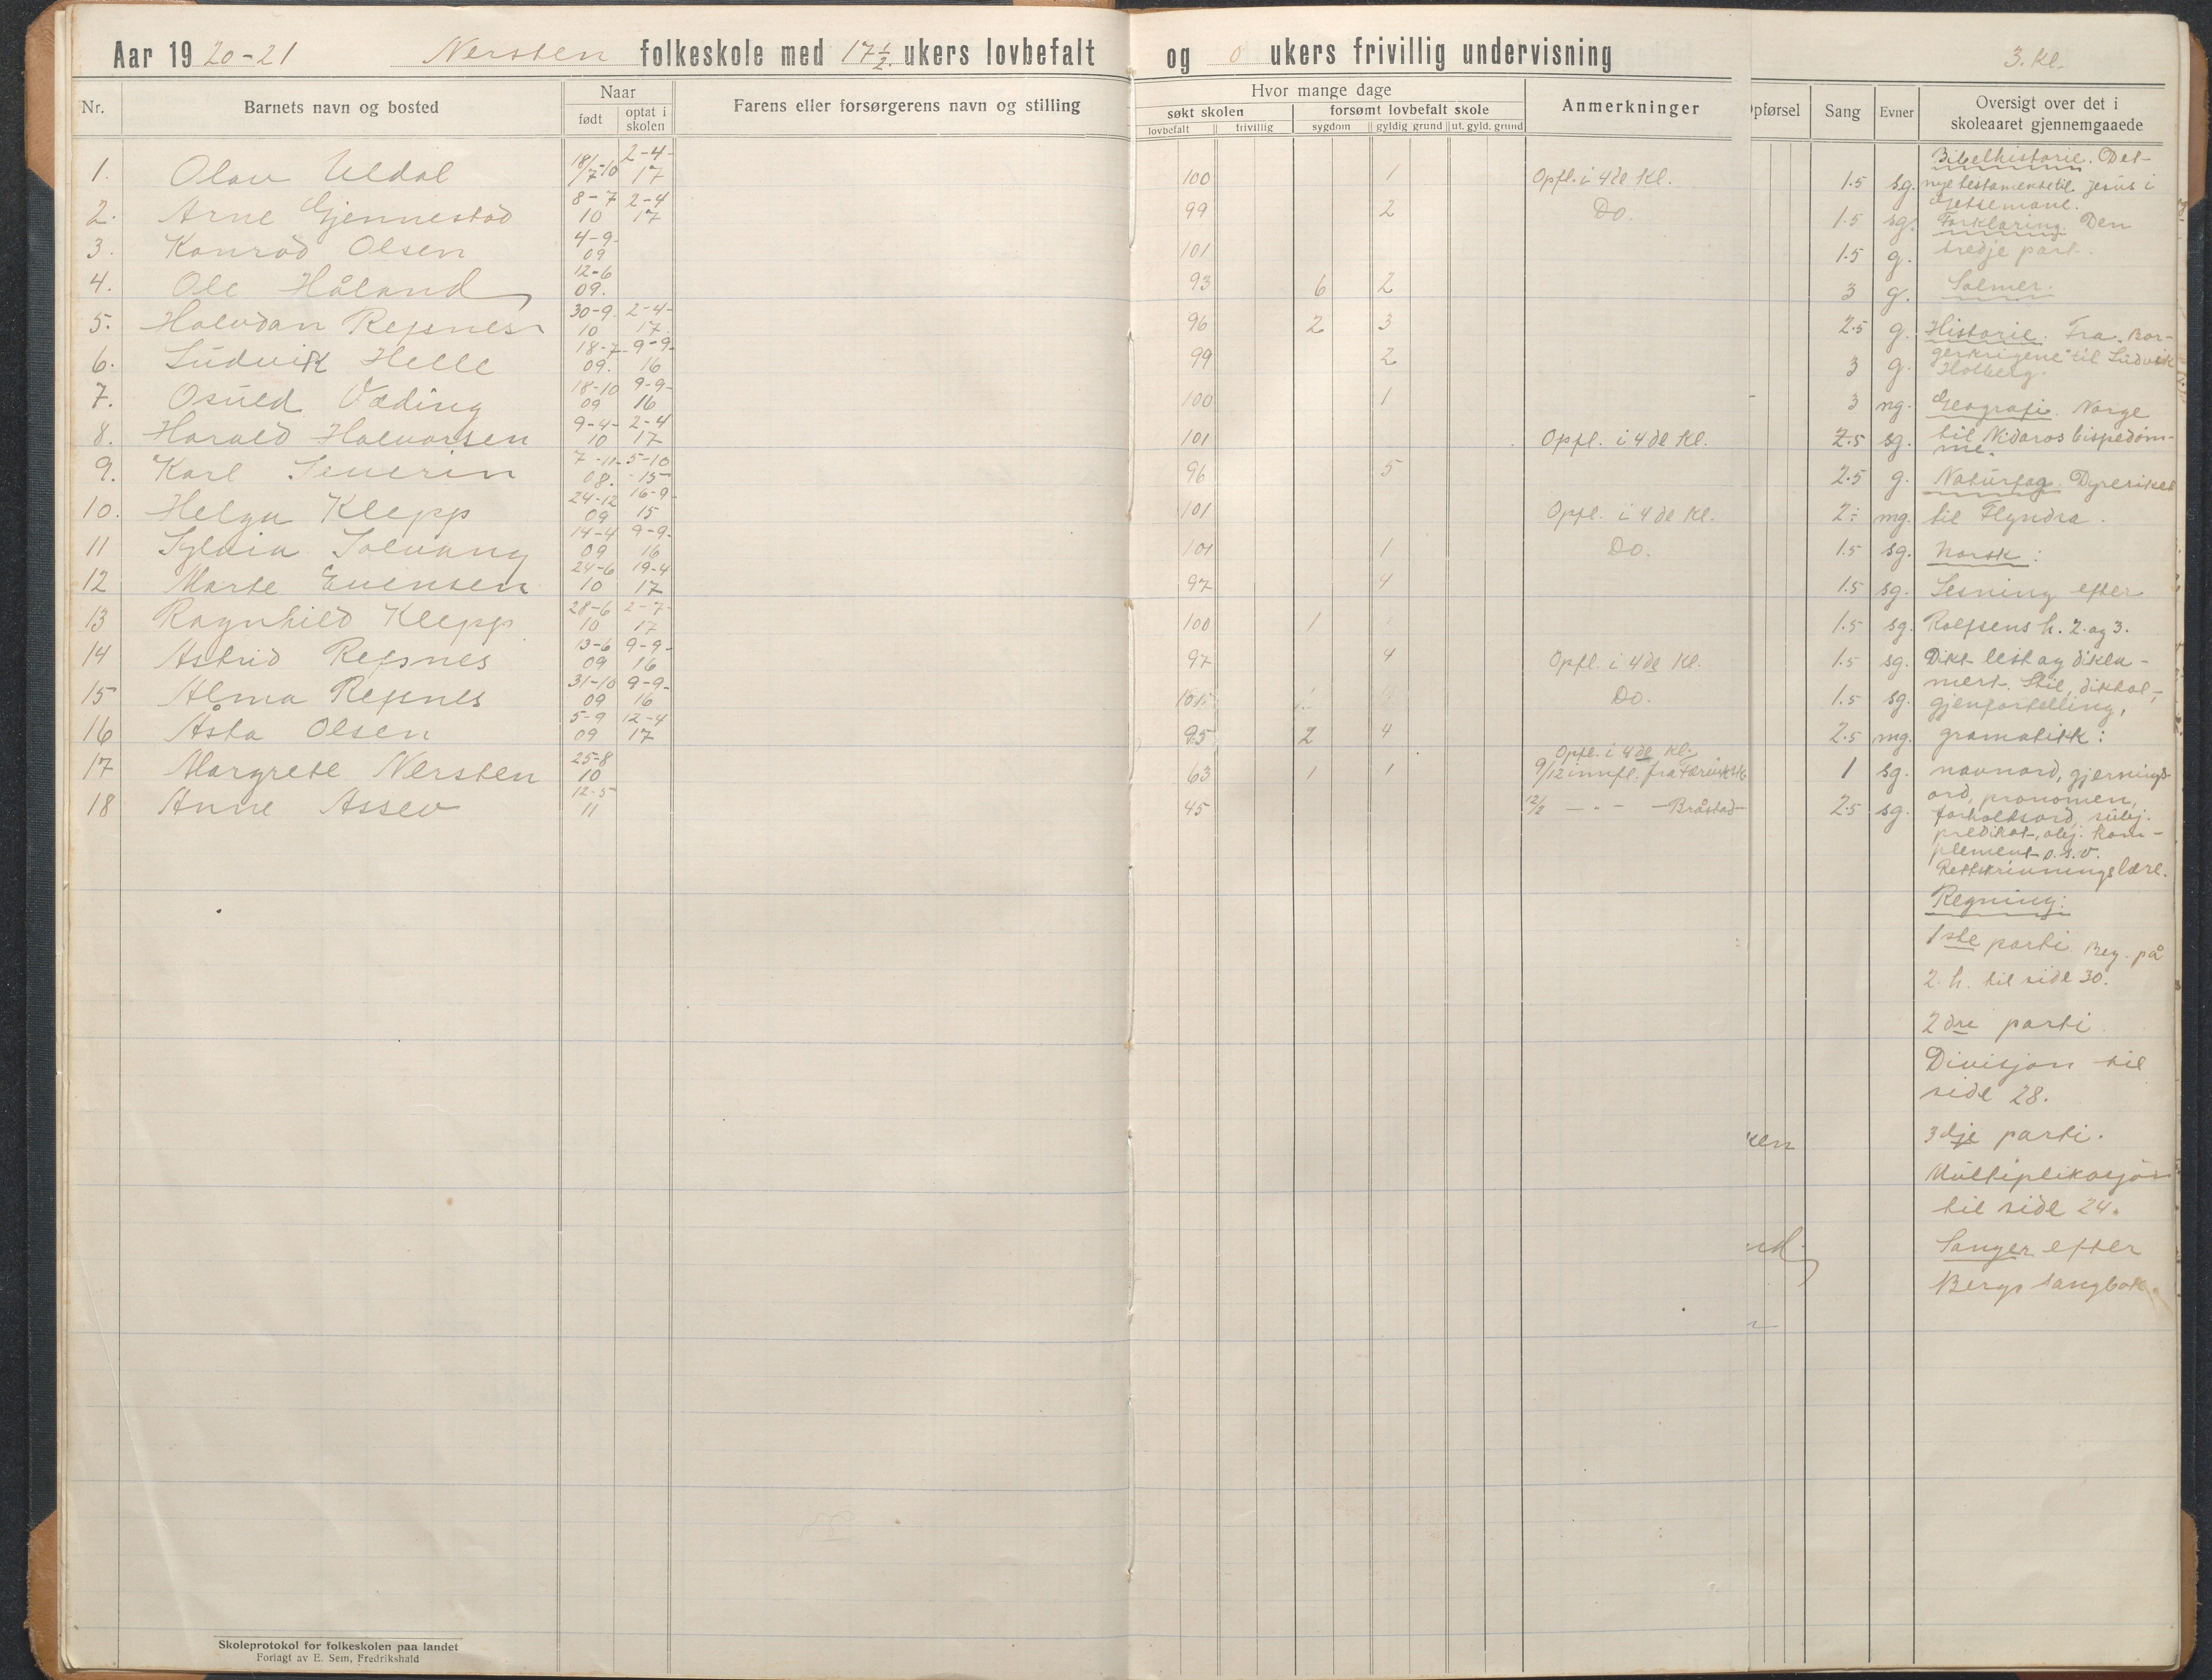 Aar 1920-21 Nersten folkeskole med 17 1/2 ukers lovbefalt og 0 ukers frivillig undervisning
3. Kl.
Nr. Barnets navn og bosted Naar født optat i skolen Farens eller forsørgerens navn og stilling
Hvor mange dage søkt skolen lovbefalt frivillig forsømt lovbefalt skole sygdom gyldig grund ut. gyld. grund Anmerkninger
Opførsel Sang Evner Oversigt over det i skoleaaret gjennemgaaede
1. Olav Uldal 18/7-10 2-4-17 100 1 Opfl. i 4de Kl. 1.5 sg.
2. Arne Gjennestad 8-7 10 2-4 17 99 2 Do. 1.5 sg.
3. Konrad Olsen 4-9- 09 101 1.5 g.
4. Ole Håland 12-6 09. 93 6 2 3 g.
5. Halvdan Repsnes 30-9. 10 2-4- 17. 96 2 3 2.5 g.
6. Ludvik Helle 18-7- 09. 9-9- 16 99 2 3 g.
7. Osuld Væding 18-10 09 9-9- 16 100 1 3 ng.
8. Harald Halvorsen 9-4- 10 2-4 17 101 Opfl. i 4de Kl. 2.5 sg.
9. Karl Severin 7-11- 08. 5-10 -15- 96 5 2.5 g.
10. Helga Klepp 24-12 09 16-9- 15 101 Opfl. i 4de Kl. 2÷ mg.
11 Sylvia Solvang 14-4 09 9-9- 16 101 1 Do. 1.5 sg.
12 Marte Evensen 24-6 10 19-4 17 97 4 1.5 sg.
13 Ragnhild Klepp 28-6 10 2-7- 17 100 1 1.5 sg.
14 Astrid Repsnes 13-6 09 9-9- 16 97 4 Opfl. i 4de Kl. 1.5 sg.
15 Alma Repsnes 31-10 09 9-9- 16 101 Do. 1.5 sg.
16 Åsta Olsen 5-9 09 12-4 17 95 2 4 2.5 mg.
17 Margrete Nersten 25-8 10 63 1 1 Opfl. i 4de Kl. 9/12 innfl. fra 1 sg.
18 Anne Assev 12-5 11 45 12/2 — " — Bråstad— 2.5 sg.
Bibelhistorie. Det
nye testamente til Jesus i
Getsemane.
Forklaring. Den
tredje part.
Salmer.
Historie. Fra "Bor-
gerkrigene" til Ludvik
Holberg.
Geografi. Norge
til Nidaros bispedøm-
me.
Naturfag. Dyreriket
til Flyndra.
Norsk:
Lesning efter
Rolfsens h. 2. og 3.
Dikt lest og dekla-
mert. Stil, diktat,
gjenfortelling,
gramatikk:
navnord, gjernings-
ord, pronomen,
forholdsord, subj.
predikat, obj. kom-
plement o.s.v.
Rettskrivningslære.
Regning:
1ste parti Beg. på
2. h. til side 30.
2dre parti
Divisjon til
side 28.
3dje parti.
Multiplikasjon
til side 24.
Sanger efter
Bergs sangbok.
ken
nd
Skoleprotokol for folkeskolen paa landet
Forlagt av E. Sem, Fredrikshald